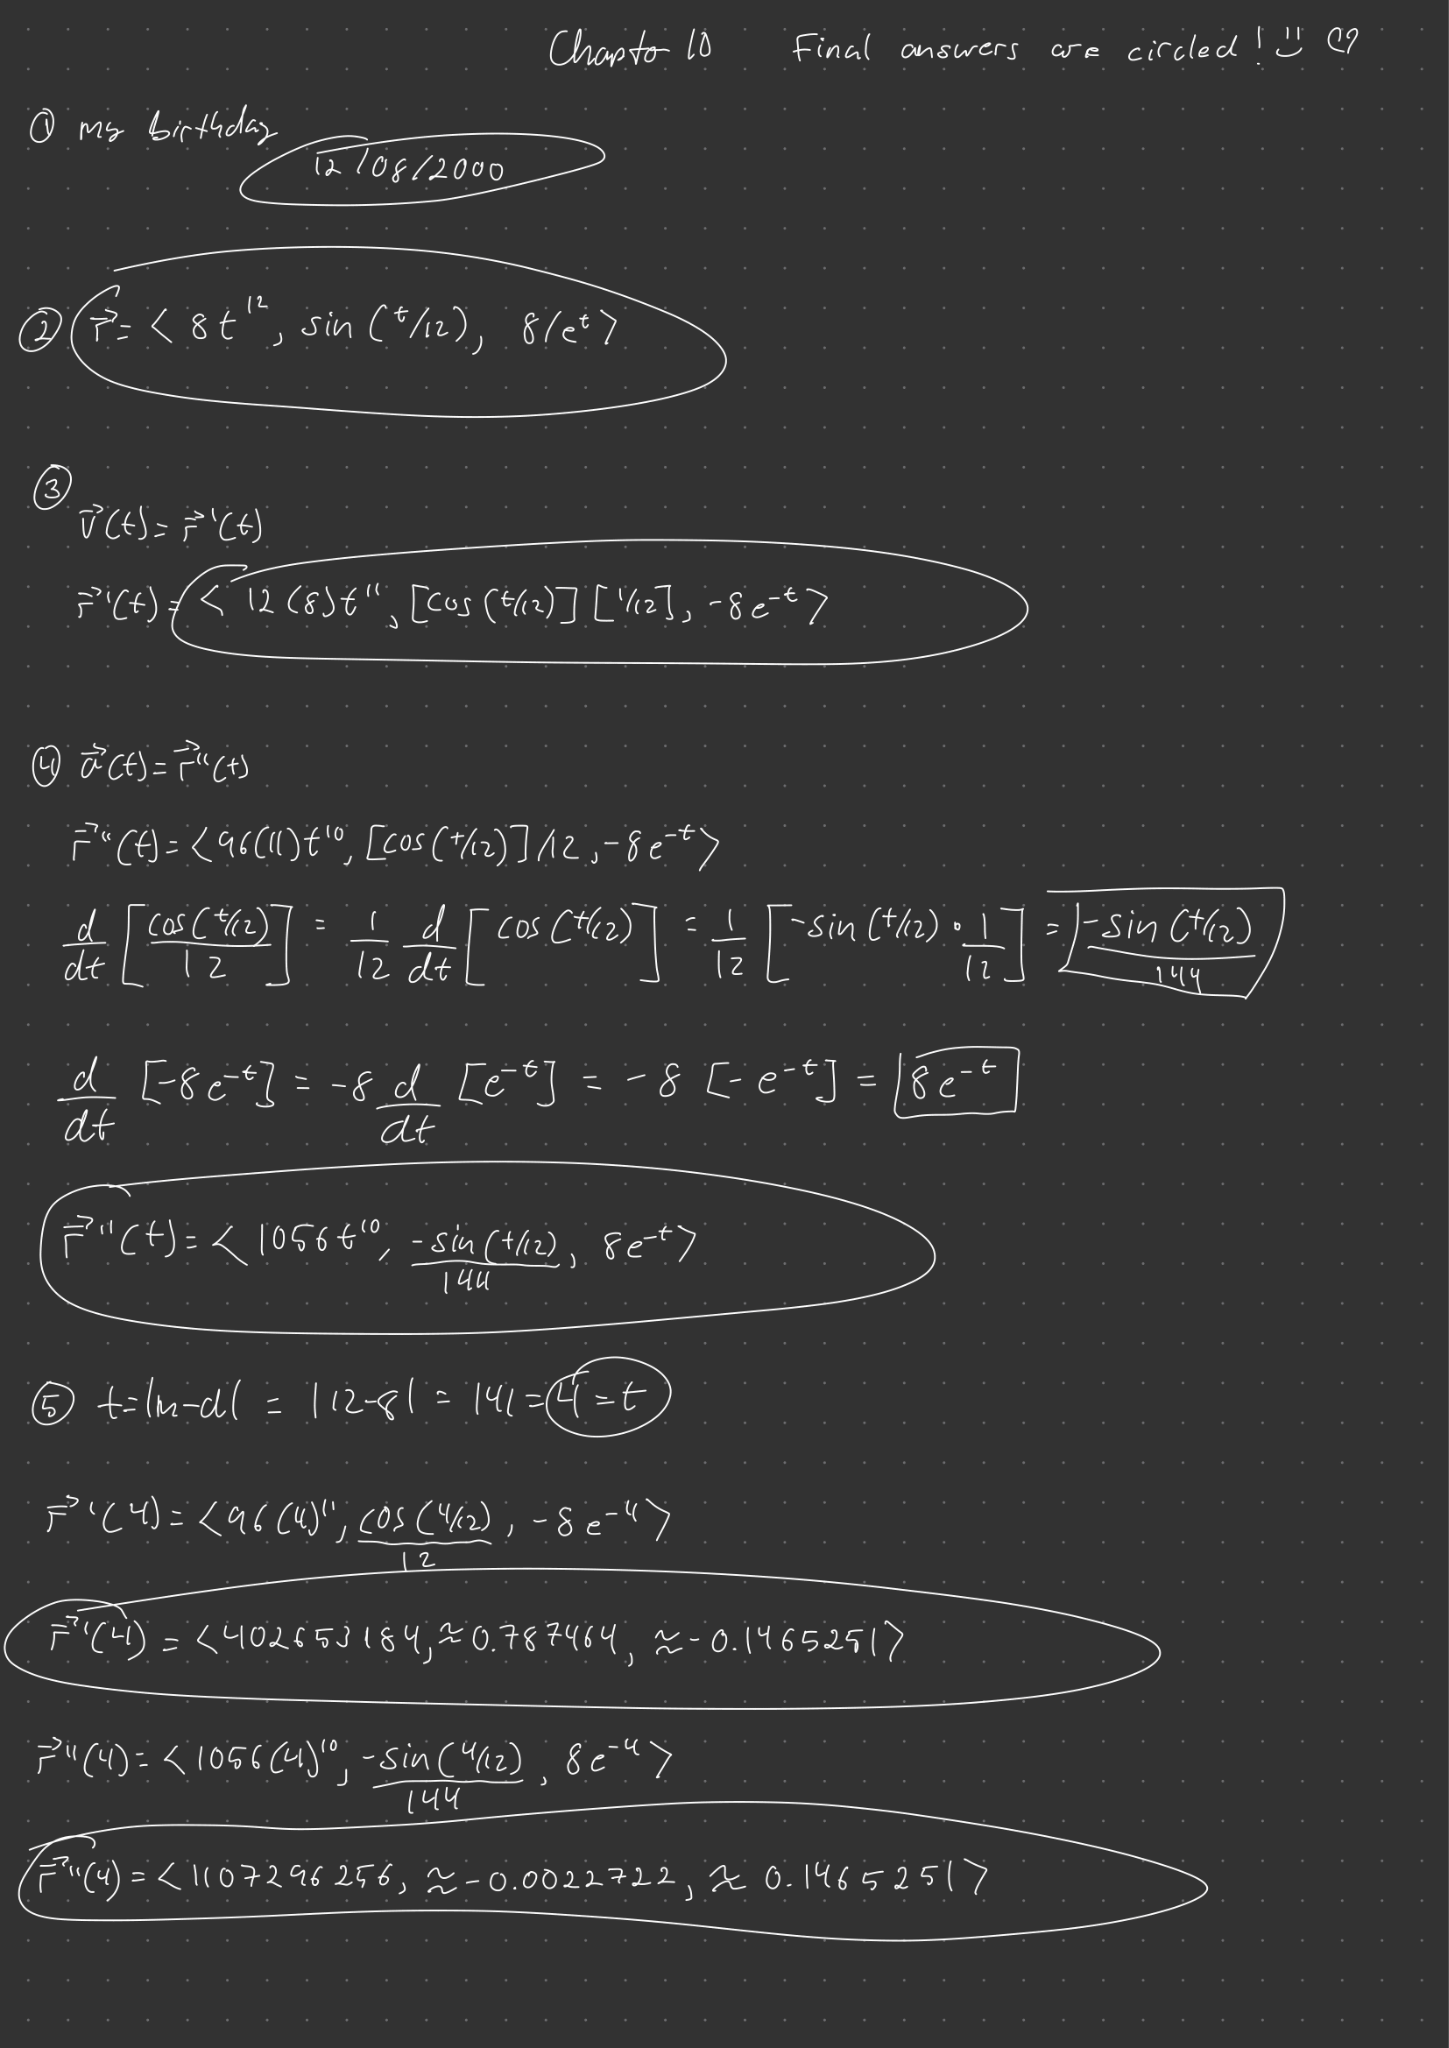 Chapter 10 Final answers are circled!
① my birthday
12/08/2000
② r⃗ = < 8t¹², sin(t/12), 8/eᵗ >
③
v⃗(t) = r⃗'(t)
r⃗'(t) = < 12(8)t¹¹, [cos(t/12)][1/12], -8e⁻ᵗ >
④ a⃗(t) = r⃗''(t)
r⃗''(t) = < 96(11)t¹⁰, [cos(t/12)]/12, -8e⁻ᵗ >
d/dt [cos(t/12)/12] = 1/12 d/dt [cos(t/12)] = 1/12 [-sin(t/12) · 1/12] = -sin(t/12)/144
d/dt [-8e⁻ᵗ] = -8 d/dt [e⁻ᵗ] = -8 [-e⁻ᵗ] = 8e⁻ᵗ
r⃗''(t) = < 1056t¹⁰, -sin(t/12)/144, 8e⁻ᵗ >
⑤ t = |m-d| = |12-8| = |4| = 4 = t
r⃗'(4) = < 96(4)¹¹, cos(4/12)/12, -8e⁻⁴ >
r⃗'(4) = < 402653184, ≈0.787464, ≈-0.1465251 >
r⃗''(4) = < 1056(4)¹⁰, -sin(4/12)/144, 8e⁻⁴ >
r⃗''(4) = < 1107296256, ≈-0.0022722, ≈ 0.1465251 >